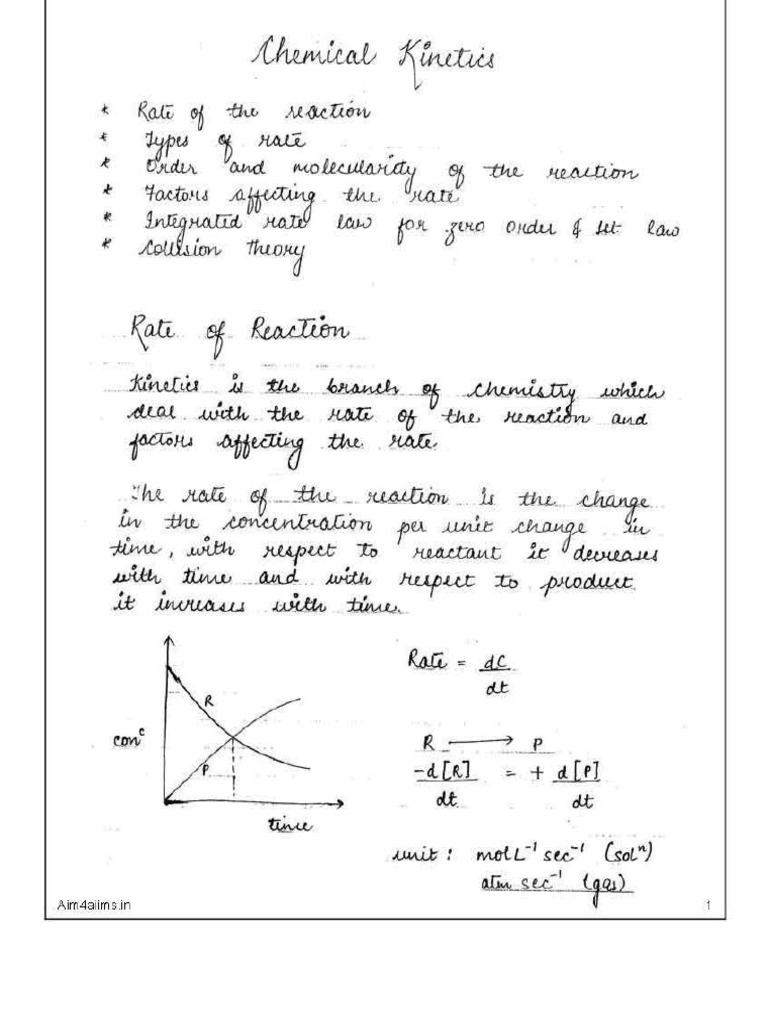 Chemical Kinetics
* Rate of the reaction
* Types of rate
* Order and molecularity of the reaction
* Factors affecting the rate
* Integrated rate law for zero order & Ist law
* Collision Theory
Rate of Reaction
Kinetics is the branch of chemistry which
deal with the rate of the reaction and
factors affecting the rate.
The rate of the reaction is the change
in the concentration per unit change in
time, with respect to reactant it decreases
with time and with respect to product
it increases with time.
Rate = dC
dt
R
conᶜ
P
time
R ⟶ P
-d[R] = + d[P]
dt dt
unit: mol L⁻¹ sec⁻¹ (solⁿ)
atm sec⁻¹ (gas)
Aim4aiims.in 1